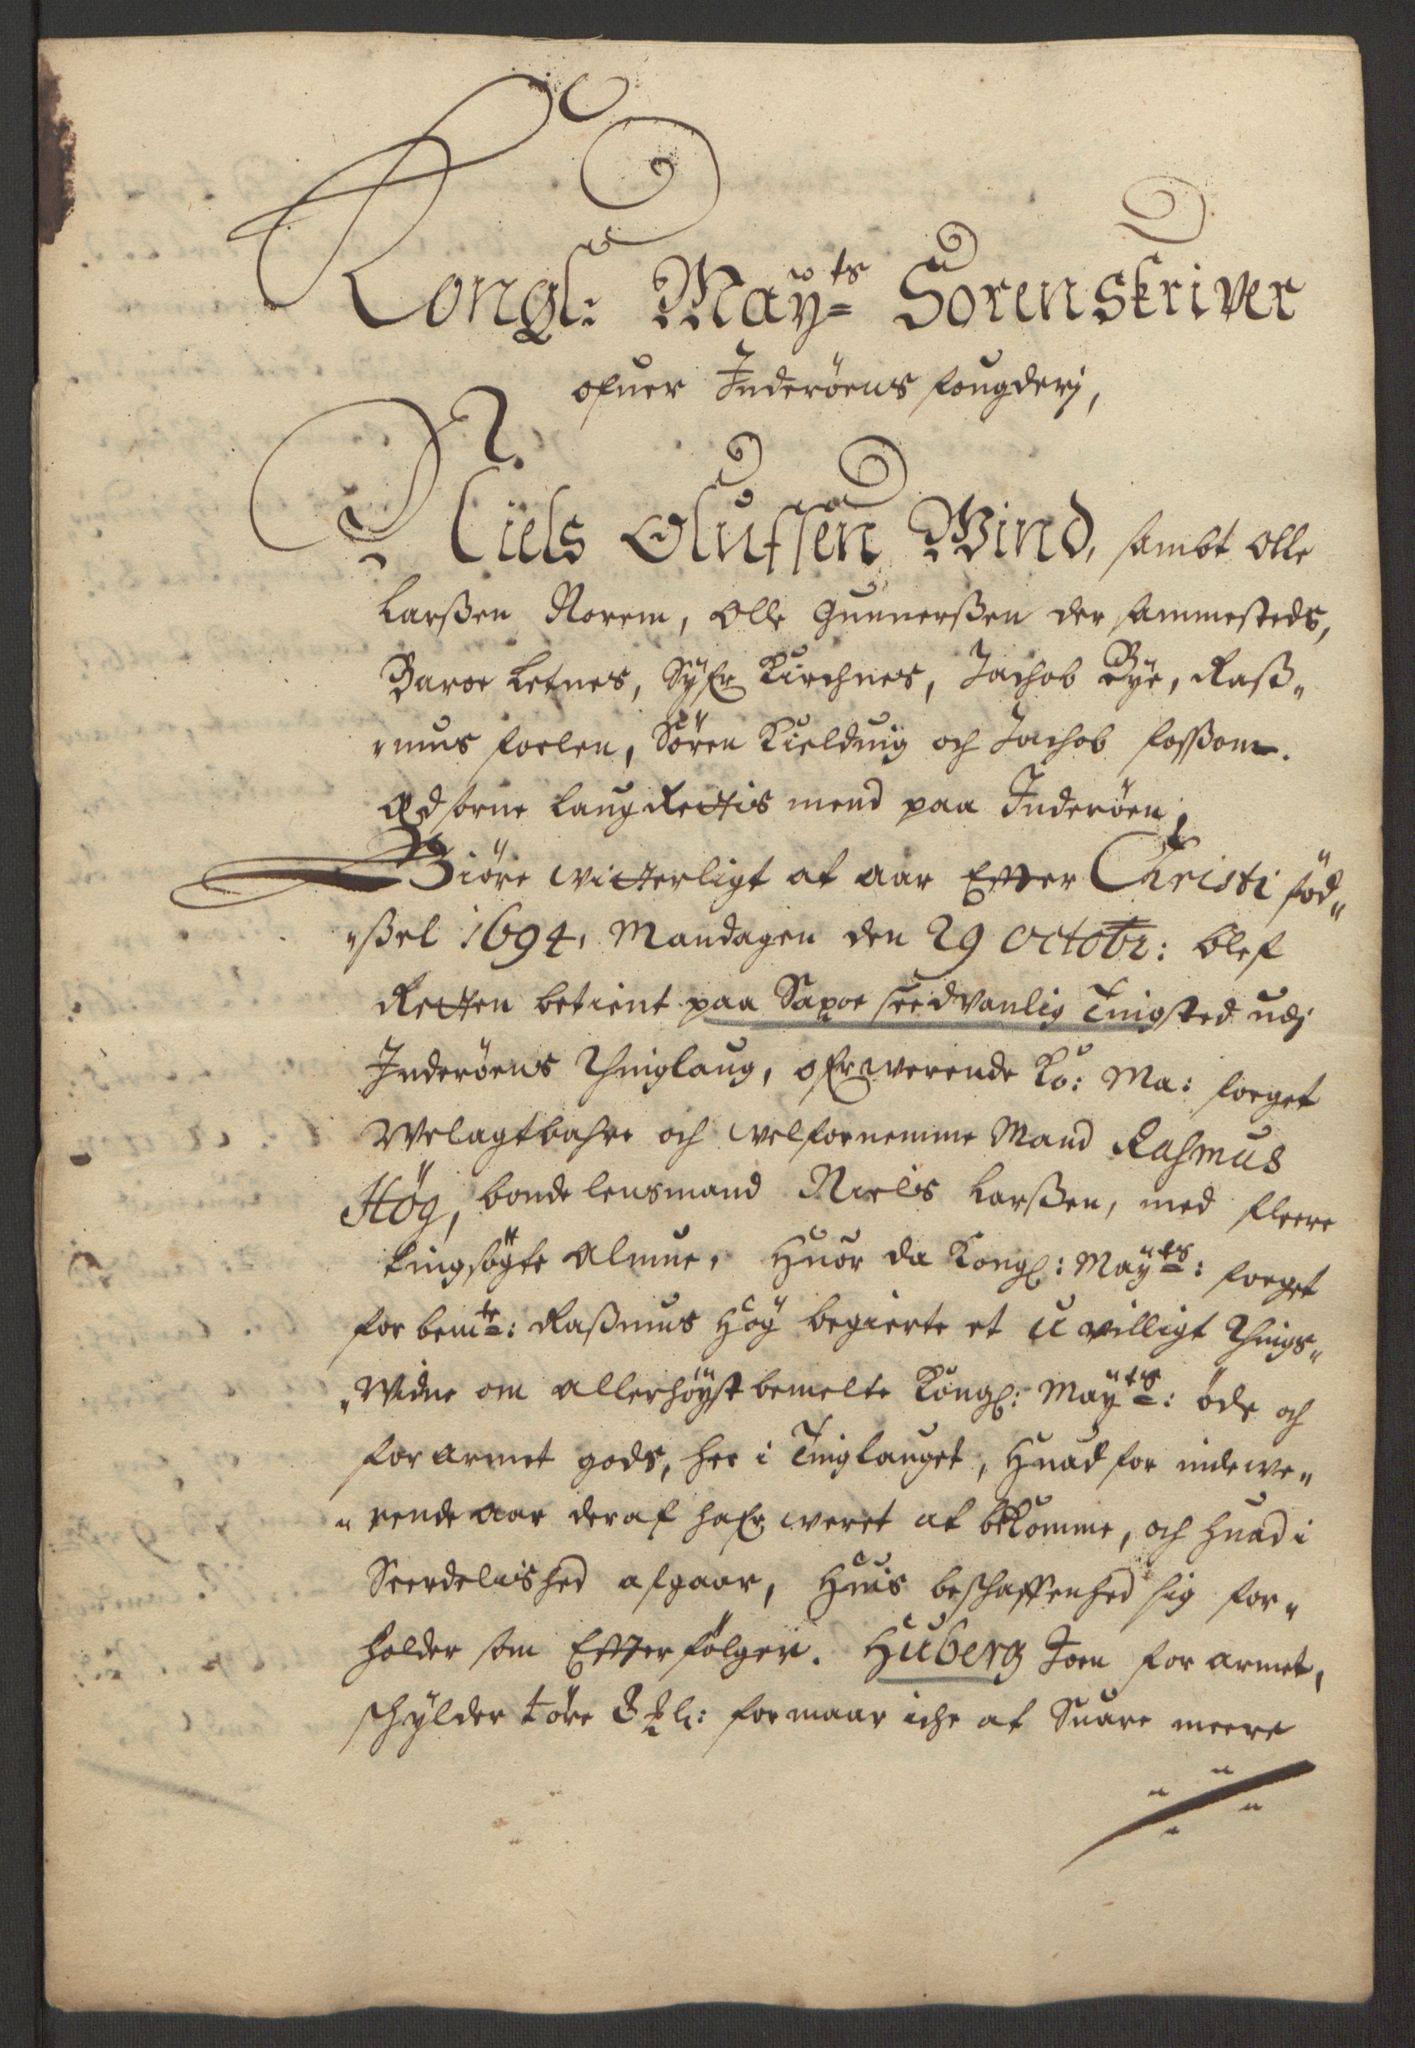 Kongl: Maÿts Sorenskriver
ofuer Inderöens fougderj,
Niels Olufsen Wind, sambt Olle
Larßen Rorem, Olle Gunnerßen der sammesteds,
Baroe Letnes, Syfr Kirchnes, Jachob Bÿe, Raß„
„mus foelen, Sören Kieldvig och Jachob foßom.
Edsorne Laug Rettis mend paa Inderöen,
Giöre witterligt at aar Effter Christi föd„
„ßel 1694, Mandagen den 29 octobr: blef
Retten betient paa Saxoe seedvanlig Tingsted udj
Inderöens Thinglaug, ofrwerende Ko: Ma: foeget
Welagtbahre och welfornemme Mand Rasmus
Hög, bonde lensmand Niels Larßen, med fleere
tingsögte Almue. Huor da Kongl: Maÿts: foeget
forbemte: Raßmus Hög begierte et uvilligt Things„
„Widne om allerhöyst bemelte Kongl: Maÿts: öde och
forarmet gods, her i Tinglauget, Huad for indewe„
„rende aar deraf hafr weret at bekomme, och huad i
Seerdelished afgaar, Huis beschaffenhed sig for„
holder som Effterfölger. Huberg Joen forarmet,
schylder töre 3 Ø: formaar iche at Suare meere